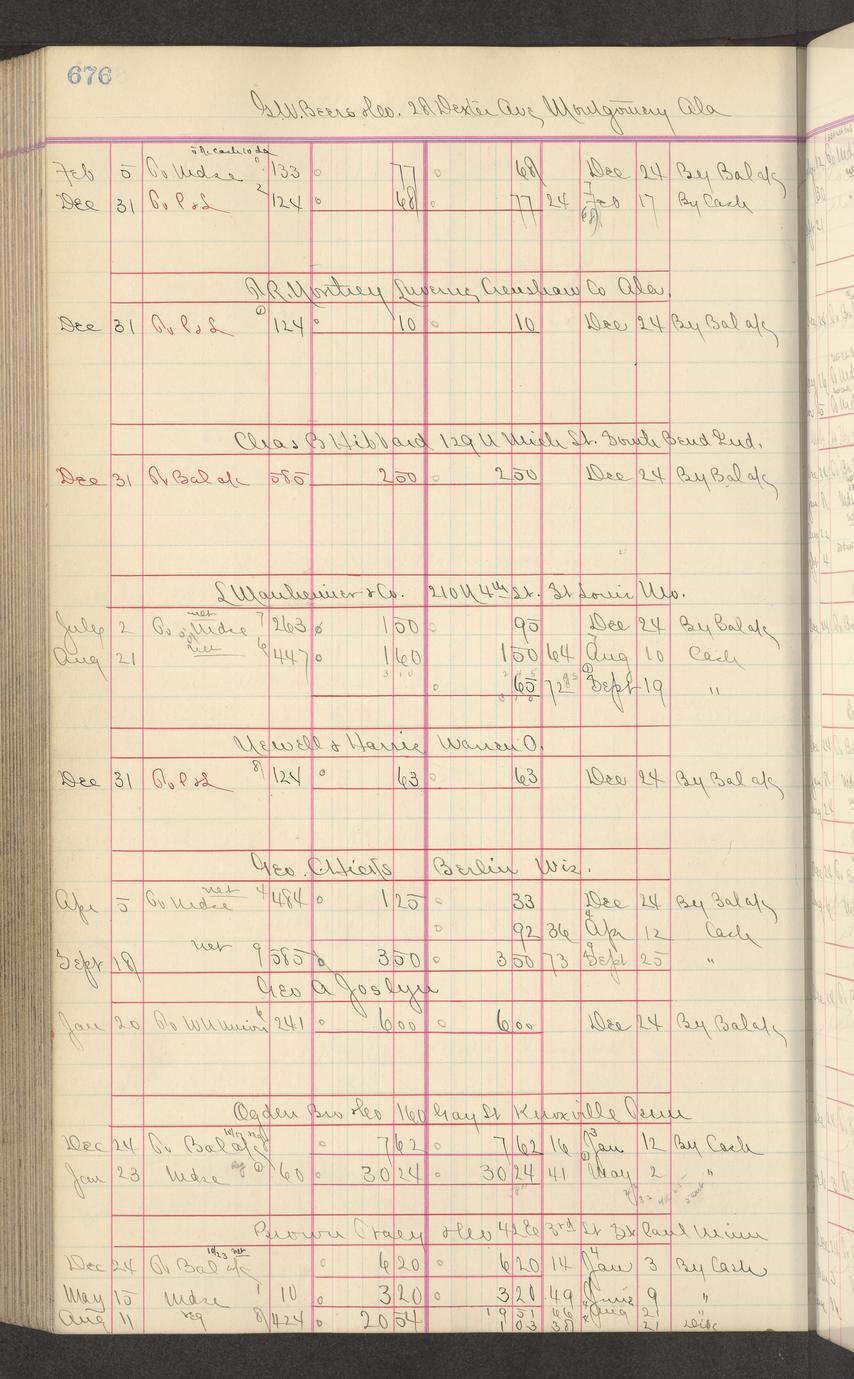 676
G.W. Beers & Co. 28 Dexter Ave, Montgomery Ala
5% cash 10 da
Feb 5 To Mdse 133 77 68 Dec 24 By Bal a/c
Dec 31 To P & L 124 68 77 24 Feb 17 By Cash
Luverne, Crenshaw Co Ala.
Dec 31 To P & L 124 10 10 Dec 24 By Bal a/c
Chas B Hibbard 129 N Mich St. South Bend Ind.
Dec 31 To Bal a/c 585 250 250 Dec 24 By Bal a/c
L Manheimer & Co. 210 N 4th St. St Louis Mo.
net
July 2 To Mdse 7 263 150 95 Dec 24 By Bal a/c
Aug 21 net 6 447 160 150 64 Aug 10 Cash
65 72 Sept 19 "
Newell & Harris Warren O.
Dec 31 To P & L 8 124 63 63 Dec 24 By Bal a/c
Geo. Berlin Wis.
Apr 5 To Mdse net 4 484 125 33 Dec 24 By Bal a/c
92 36 Apr 12 Cash
Sept 18 net 9 585 350 350 73 Sept 25 "
Geo A Joslyn
Jan 20 To W N Union 241 600 600 Dec 24 By Bal a/c
Ogden Bro & Co 160 Gay St Knoxville Tenn
Dec 24 To Bal a/c 762 762 16 Jan 12 By Cash
Jan 23 Mdse 60 3024 3024 41 May 2 "
Brown Tracy & Co 42 E 3rd St St Paul Minn
10/23 net
Dec 24 To Bal a/c 620 620 14 Jan 3 By Cash
May 15 Mdse 1 10 320 320 49 June 9 "
Aug 11 reg 8 424 2054 1951 66 Aug 21 "
103 38 21 Disc